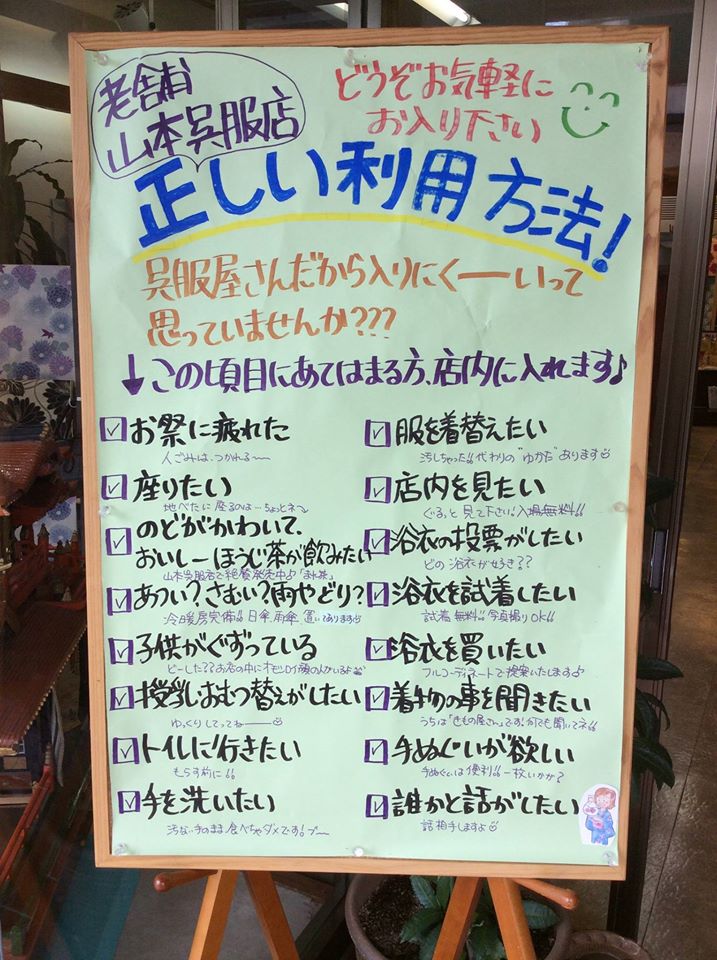 老舗
山本呉服店
どうぞお気軽に
お入り下さい
正しい利用方法!
呉服屋さんだから入りにくーいって
思っていませんか???
↓この項目にあてはまる方、店内に入れます♪
☑お祭に疲れた
人ごみは、つかれる〜
☑座りたい
地べたに座るのは…ちょっとネ〜
☑のどがかわいて、
おいしーほうじ茶が飲みたい
山本呉服店で絶賛発売中♪
☑あつい?さむい?雨やどり?
冷暖房完備!!日傘、雨傘、置いてあります
☑子供がぐずっている
どーした??お店の中にオモシロイ顔の人がいるよ
☑授乳、おむつ替えがしたい
ゆっくりしてってねー
☑トイレに行きたい
もらす前に!!
☑手を洗いたい
汚ない手のまま食べちゃダメです!ブ〜
☑服を着替えたい
汚しちゃった!!代わりの"ゆかた"あります
☑店内を見たい
ぐるっと見て下さい!入場無料!!
☑浴衣の投票がしたい
どの浴衣が好き??
☑浴衣を試着したい
試着無料!!写真撮りOK!!
☑浴衣を買いたい
フルコーディネートで提案いたします♪
☑着物の事を聞きたい
うちは「きもの屋さん」です!何でも聞いてネ!!
☑手ぬぐいが欲しい
手ぬぐいは便利!!一枚いかが?
☑誰かと話がしたい
話相手しますよ